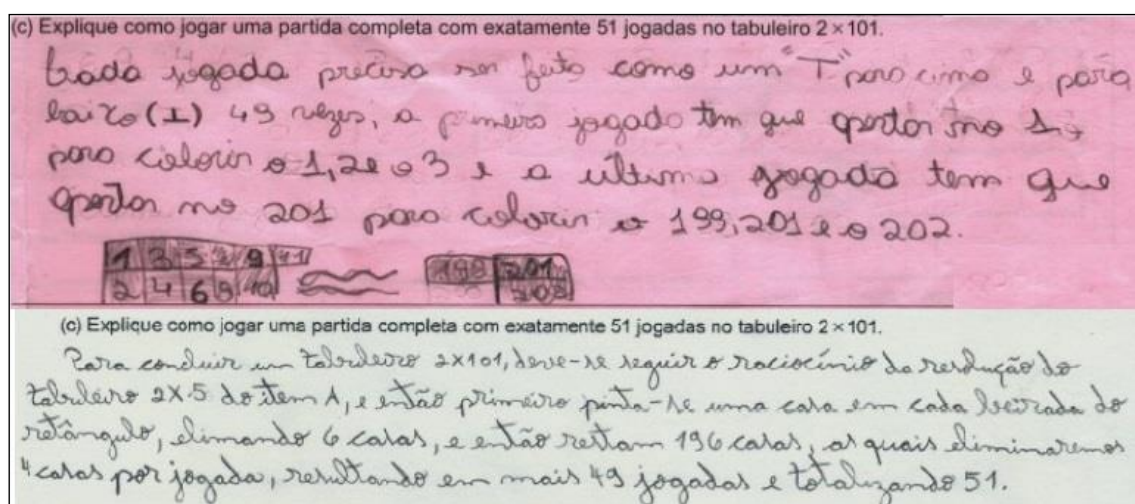 (c) Explique como jogar uma partida completa com exatamente 51 jogadas no tabuleiro 2 × 101.
Cada jogada precisa ser feita como um "T" para cima e para
baixo (⊥) 49 vezes, a primeira jogada tem que apertar no 1,
para colorir o 1, 2 e o 3 e a última jogada tem que
apertar no 201 para colorir o 199, 201 e o 202.
1 3 5 7 9 11 199 201
2 4 6 8 10 202
(c) Explique como jogar uma partida completa com exatamente 51 jogadas no tabuleiro 2 × 101.
Para concluir um tabuleiro 2x101, deve-se seguir o raciocínio da resolução do
tabuleiro 2x5 do item A, e então primeiro pinta-se uma casa em cada beirada do
retângulo, elimando 6 casas, e então restam 196 casas, as quais eliminaremos
4 casas por jogada, resultando em mais 49 jogadas e totalizando 51.